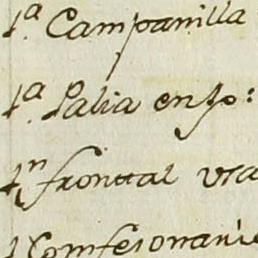 1.ª Campanilla
1.ª Palia en so:
1.n frontal usa
1 Comfesionario